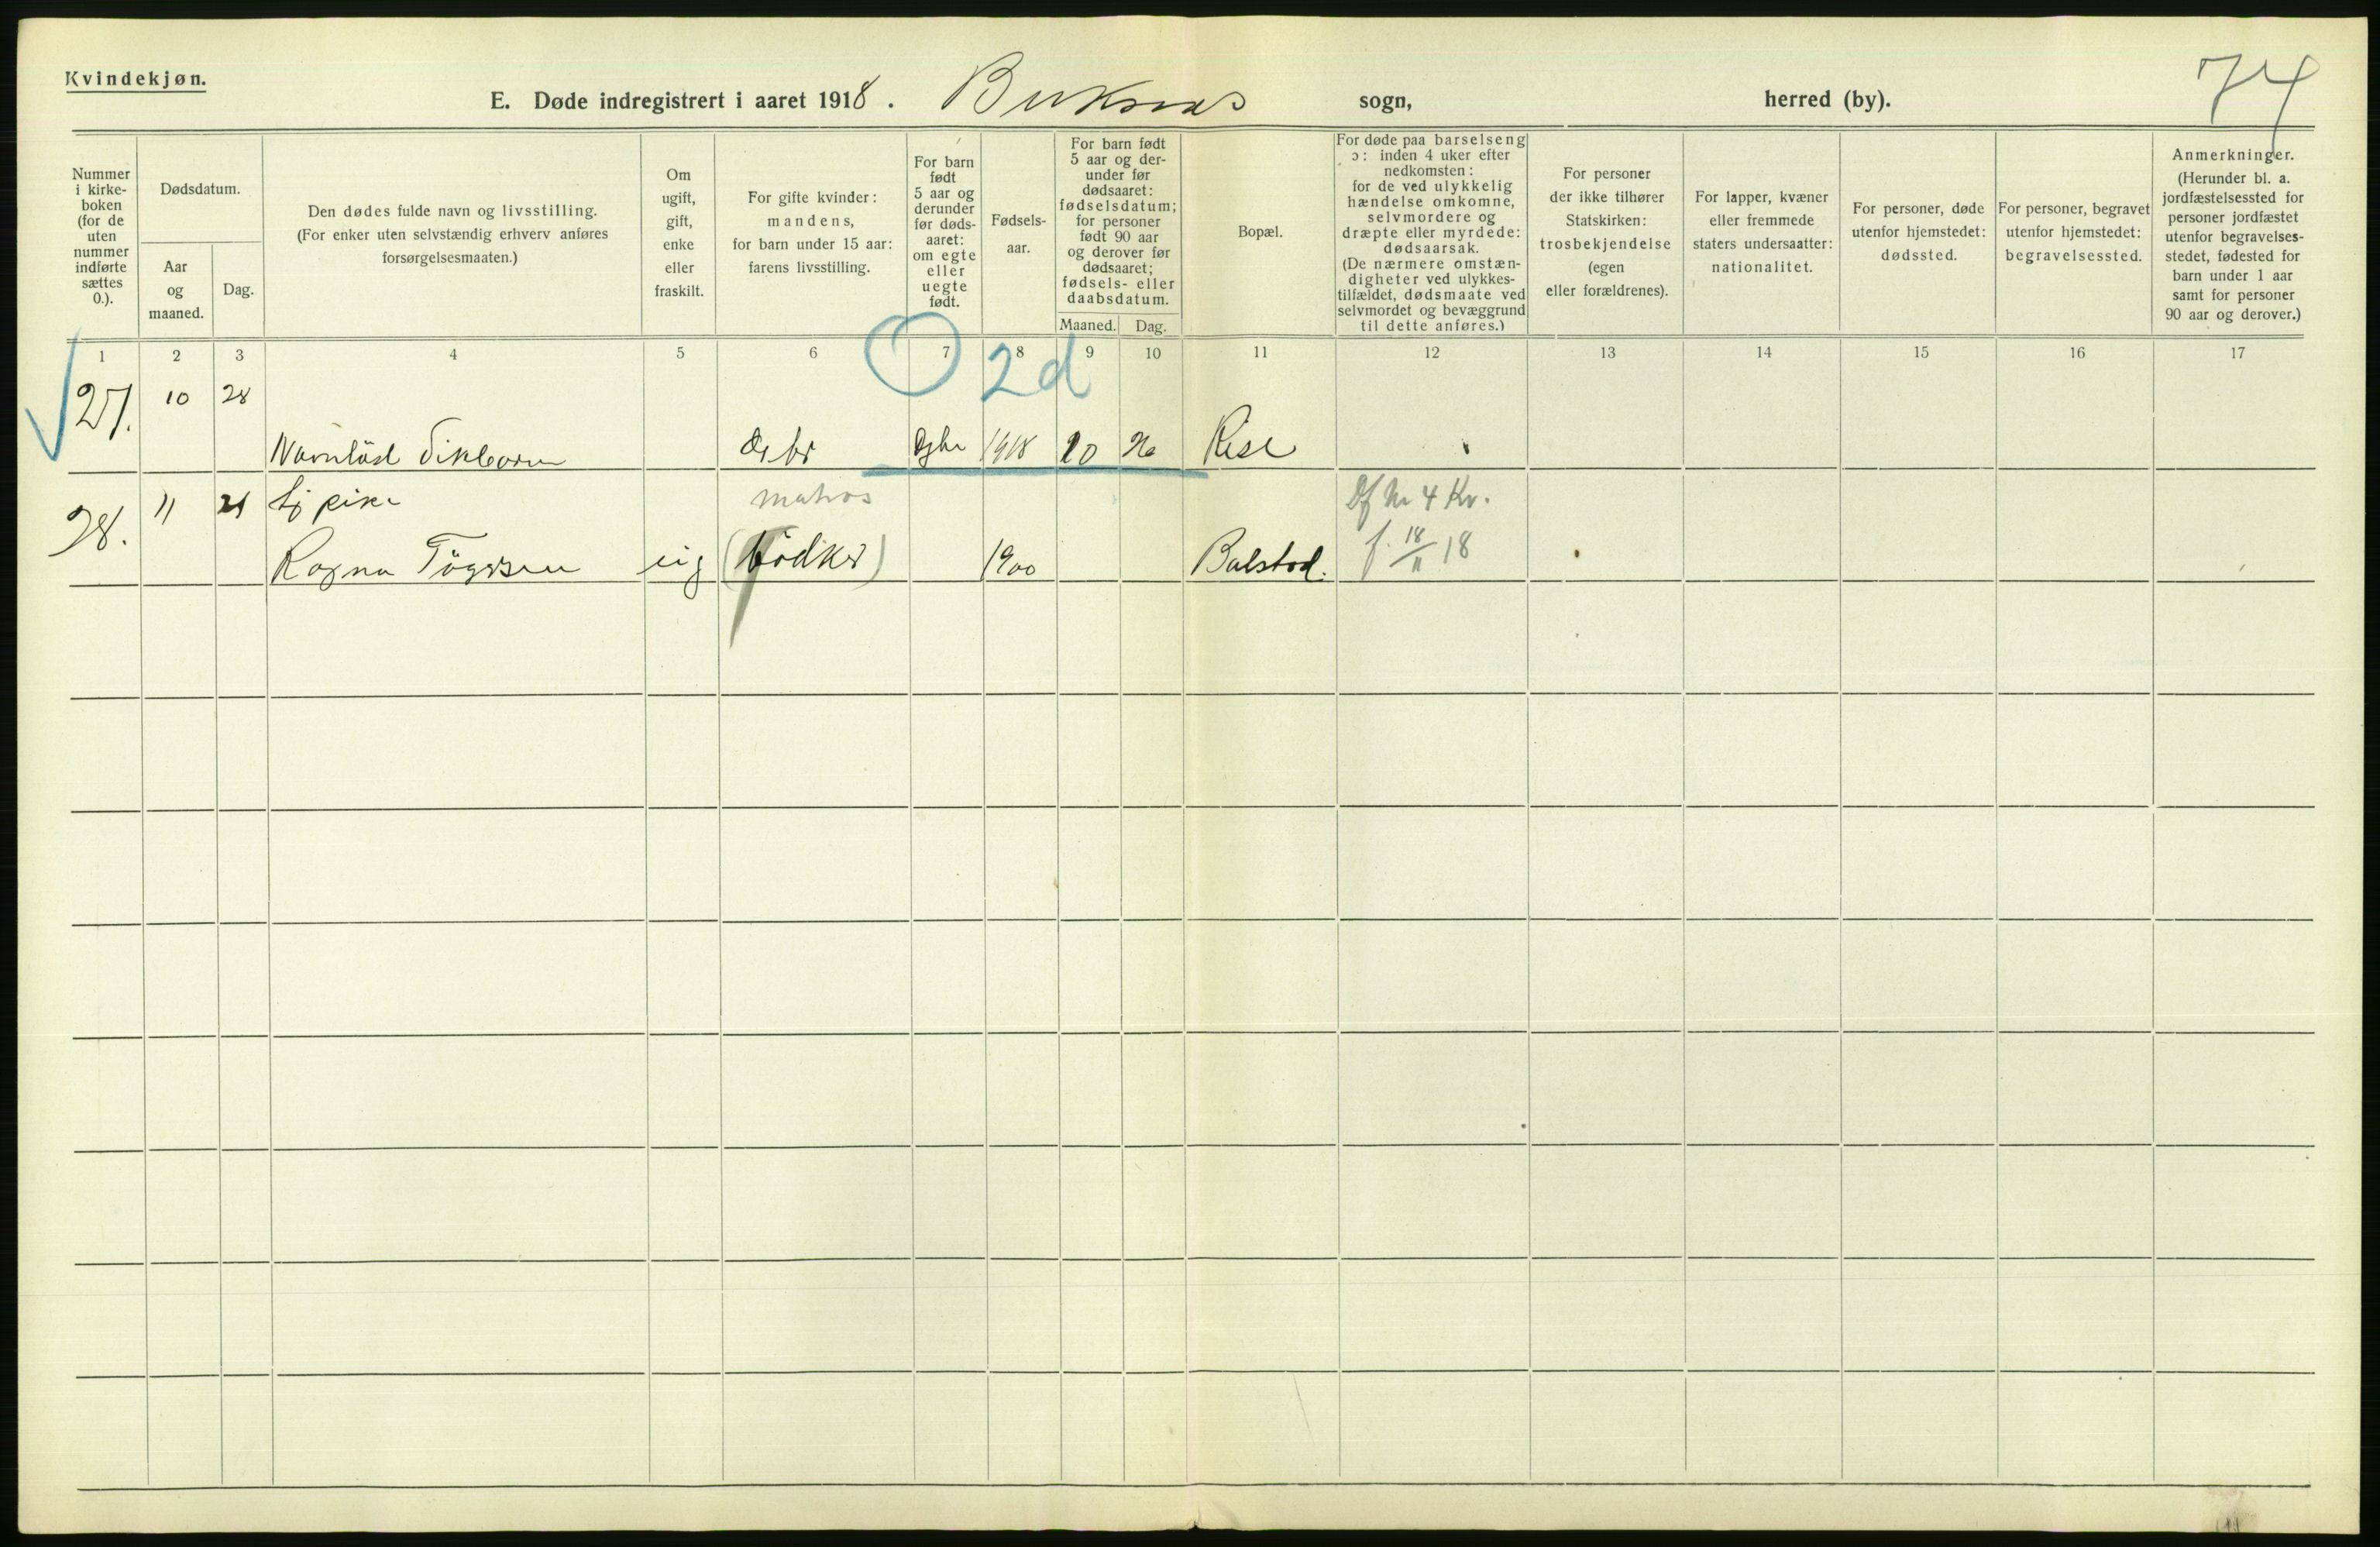 Kvindekjøn.
E. Døde indregistrert i aaret 1918. Buksnes sogn, herred (by).
74
Nummer i kirke- boken (for de uten nummer indførte sættes 0.).
Dødsdatum.
Aar og maaned.
Dag.
Den dødes fulde navn og livsstilling.
(For enker uten selvstændig erhverv anføres
forsørgelsesmaaten.)
Om ugift, gift, enke eller fraskilt.
For gifte kvinder: mandens, for barn under 15 aar: farens livsstilling.
For barn født 5 aar og derunder før døds- aaret: om egte eller uegte født.
Fødsels- aar.
For barn født 5 aar og der- under før dødsaaret: fødselsdatum; for personer født 90 aar og derover før dødsaaret; fødsels- eller daabsdatum.
Maaned. Dag.
Bopæl.
For døde paa barselseng ɔ: inden 4 uker efter nedkomsten: for de ved ulykkelig hændelse omkomne, selvmordere og dræpte eller myrdede: dødsaarsak. (De nærmere omstæn- digheter ved ulykkes- tilfældet, dødsmaate ved selvmordet og bevæggrund til dette anføres.)
For personer der ikke tilhører Statskirken: trosbekjendelse (egen eller forældrenes).
For lapper, kvæner eller fremmede staters undersaatter: nationalitet.
For personer, døde utenfor hjemstedet: dødssted.
For personer, begravet utenfor hjemstedet: begravelsessted.
Anmerkninger. (Herunder bl. a. jordfæstelsessted for personer jordfæstet utenfor begravelses- stedet, fødested for barn under 1 aar samt for personer 90 aar og derover.)
1 2 3 4 5 6 7 8 9 10 11 12 13 14 15 16 17
2d
27. 10 28
Navnløst Pikebarn 1918 10 26
28. 11 21 pike matros Df Nr 4 Kv.
Ragna ug (bödker) 1900 Balstad. f. 18/11 18